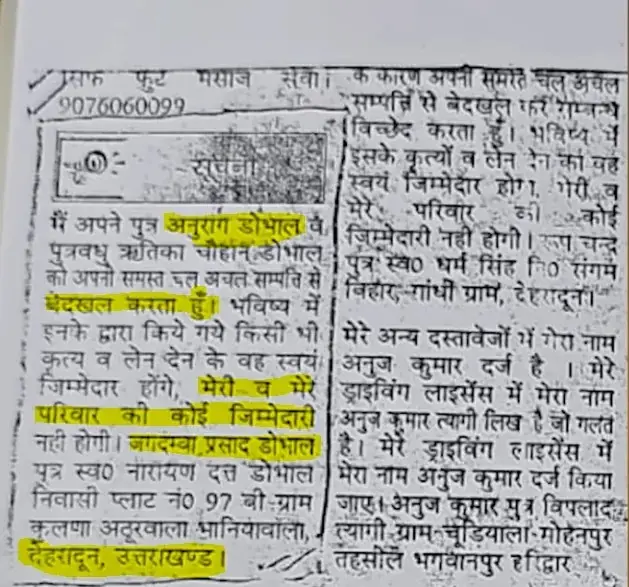 सिर्फ फुट मसाज सेवा।
9076060099
सूचना
मैं अपने पुत्र अनुराग डोभाल व
पुत्रवधु ऋतिका चौहान डोभाल
को अपनी समस्त चल अचल सम्पति से
बेदखल करता हूँ। भविष्य में
इनके द्वारा किये गये किसी भी
कृत्य व लेन देन के वह स्वयं
जिम्मेदार होंगे, मेरी व मेरे
परिवार की कोई जिम्मेदारी
नही होगी। जगदम्बा प्रसाद डोभाल
पुत्र स्व0 नारायण दत्त डोभाल
निवासी प्लाट नं0 97 बी ग्राम
कलणा अठूरवाला भानियावाला,
देहरादून, उत्तराखण्ड।
के कारण अपनी समस्त चल अचल
सम्पत्ति से बेदखल कर सम्बन्ध
विच्छेद करता हूँ। भविष्य में
इसके कृत्यों व लेन देन का वह
स्वयं जिम्मेदार होगा, मेरी व
मेरे परिवार की कोई
जिम्मेदारी नही होगी। रूप चन्द
पुत्र स्व0 धर्म सिंह नि0 संगम
विहार, गांधी ग्राम, देहरादून।
मेरे अन्य दस्तावेजों में मेरा नाम
अनुज कुमार दर्ज है । मेरे
ड्राइविंग लाइसेंस में मेरा नाम
अनुज कुमार त्यागी लिख है जो गलत
है। मेरे ड्राइविंग लाइसेंस में
मेरा नाम अनुज कुमार दर्ज किया
जाए। अनुज कुमार पुत्र विपलाद
त्यागी ग्राम-चुडियाला मोहनपुर
तहसील भगवानपुर हरिद्वार